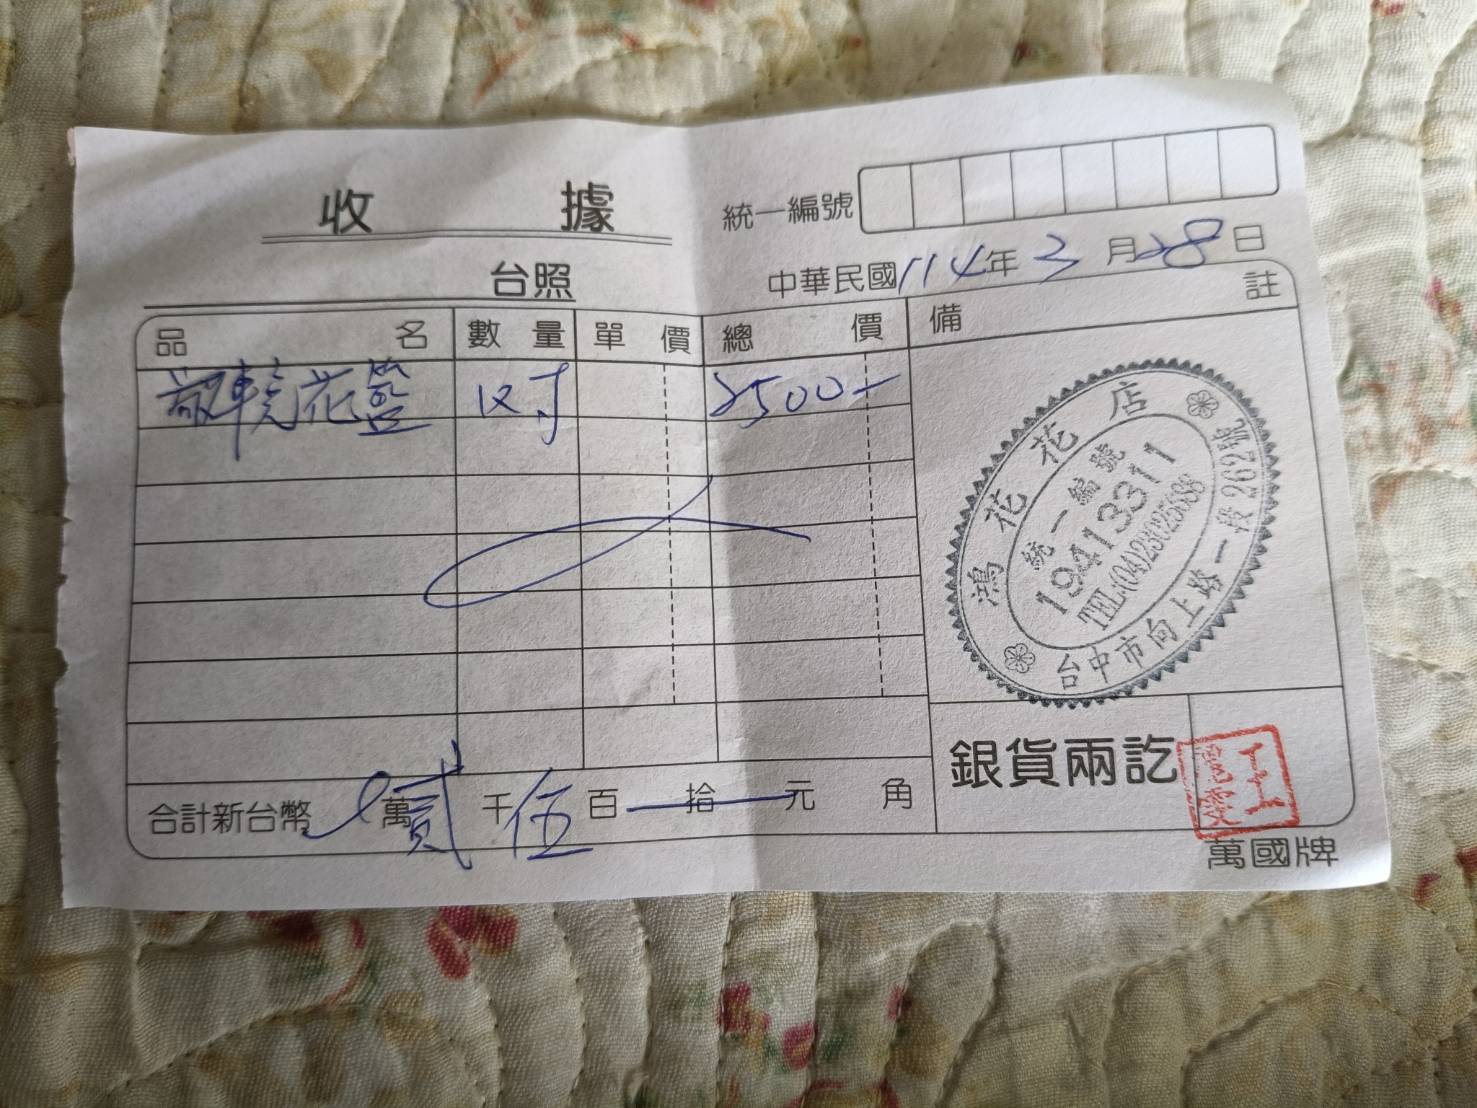 收據
統一編號
台照
中華民國114年3月28日
品名 數量 單價 總價 備註
花籃 2500-
鴻花花店
統一編號
19413311
TEL:(04)23025888
台中市向上路一段262號
銀貨兩訖
合計新台幣 萬貳千伍百拾元角
萬國牌